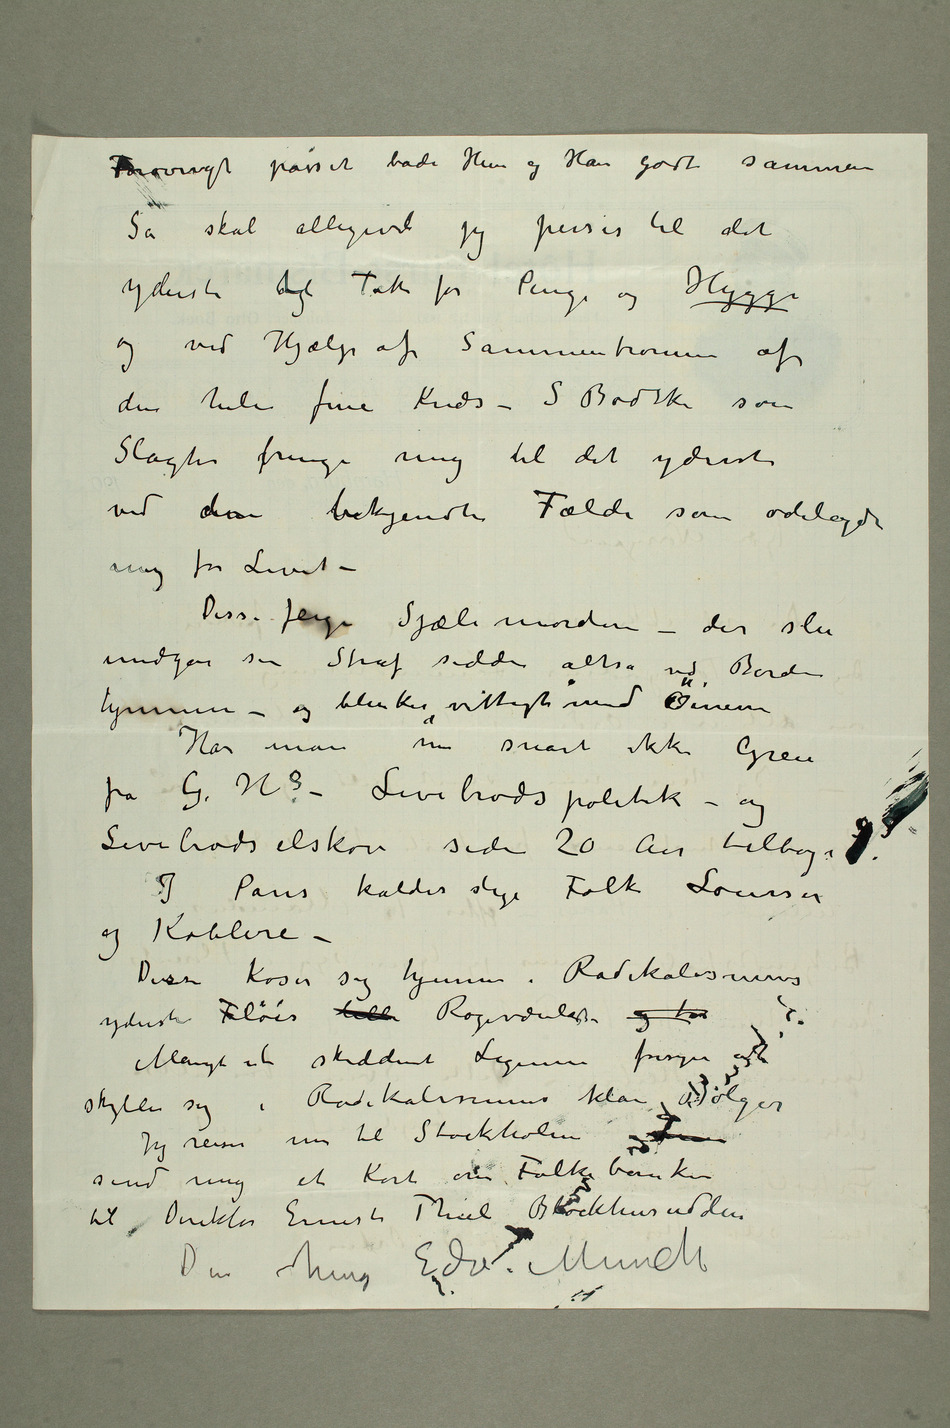 Forøvrigt passet både Hun og Han godt sammen
Så skal alligevel jeg pirres til det
yderste Tak for Penge og Hygge
og ved Hjælp af Sammentrommen af
den hele fine Kreds – S Bødtker som
Slagter fringe mig til det yderste
ved den bekjendte Fælde som ødelagde
mig for Livet –
Disse feige Sjæle mordere – der slu
undgår sin Straf sidder altså ved Bordene
hjemme – og blinker vittigt med Öinene
Har man nu snart ikke Greie
på G. Hs – Levebrødspolitik – og
Levebrødselskov siden 20 Aar tilbage.
I Paris kaldes slige Folk Louiser
og Koblere –
Disse koser sig hjemme i Radikalismens
yderste Fløies Røgeværelse
Mangt et skiddent Legeme forsøger at
skylle sig i Radikalismens klare Bølger
Jeg reiser nu til Stockholm
send mig et Kort om Folkebanken
til Direktør Ernest Thiel Blockhusudden
Din heng Edv. Munch